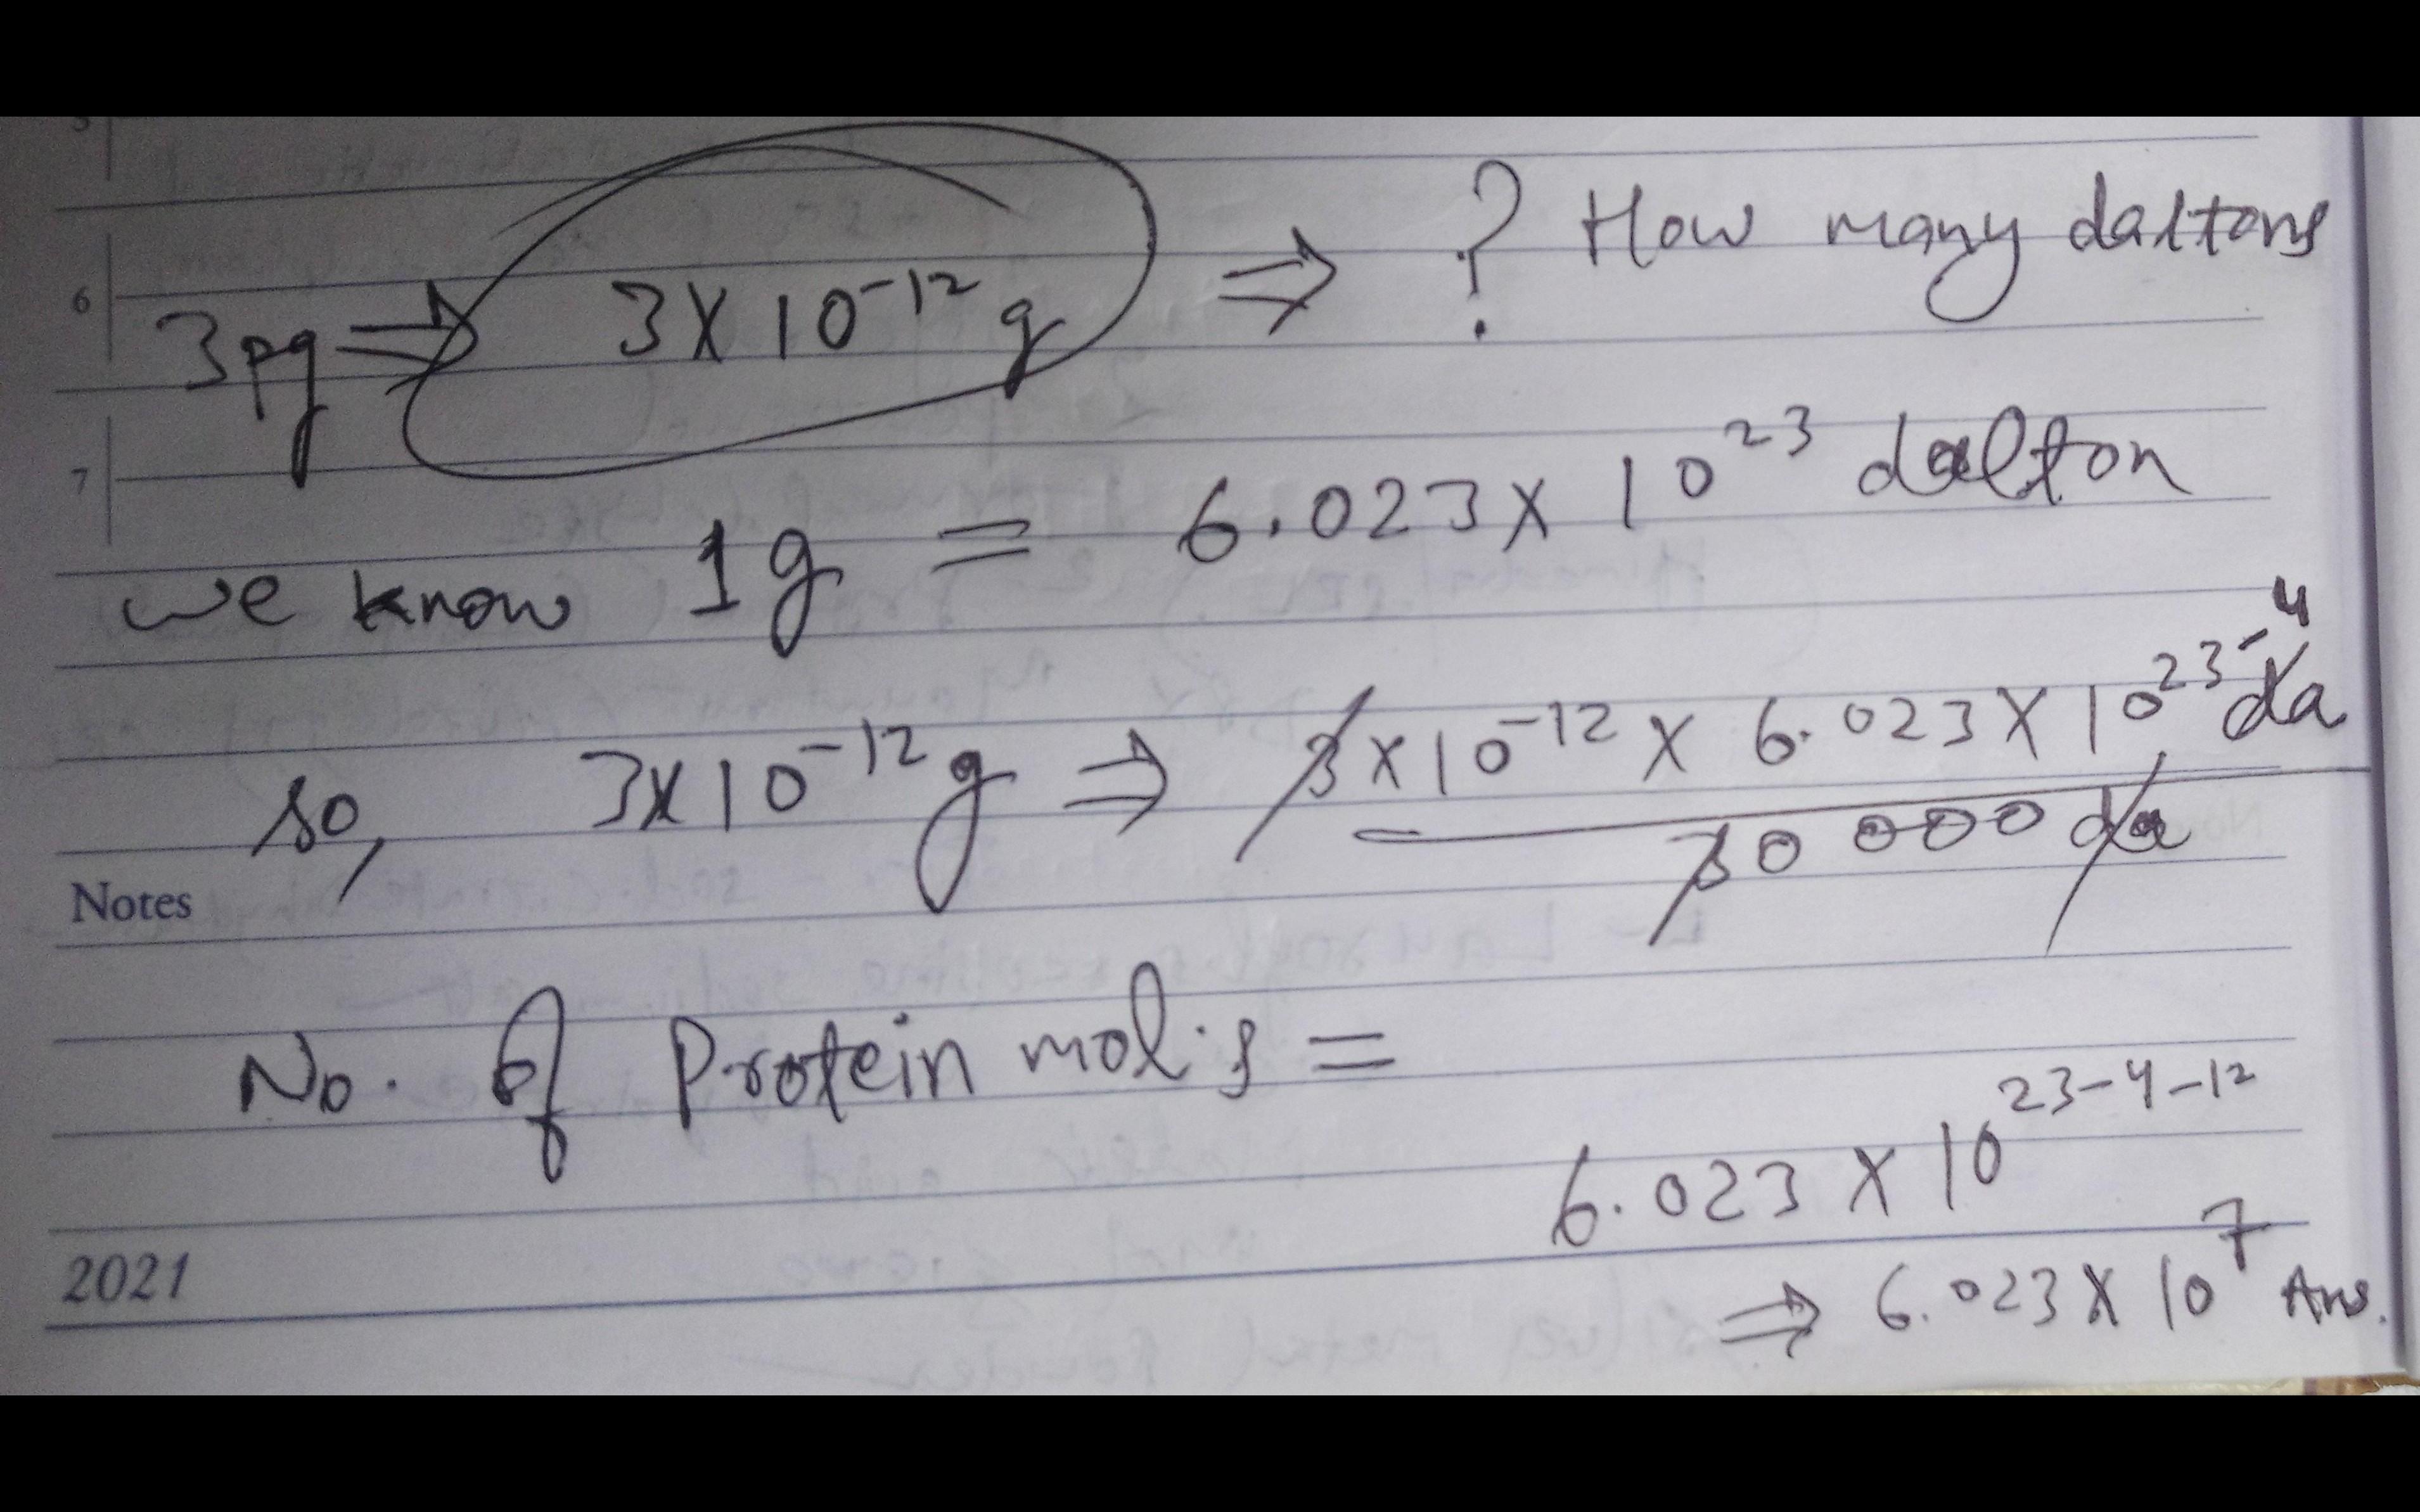 5
3pg ⇒ 3 X 10⁻¹² g ⇒ ? How many daltons
6
7
we know 1g = 6.023 X 10²³ dalton
so, 3X10⁻¹² g ⇒ 3 X 10⁻¹² X 6.023 X 10²³⁻⁴ da
30000 da
Notes
No. of Protein mol.s =
6.023 X 10²³⁻⁴⁻¹²
2021
⇒ 6.023 X 10⁷ Ans.